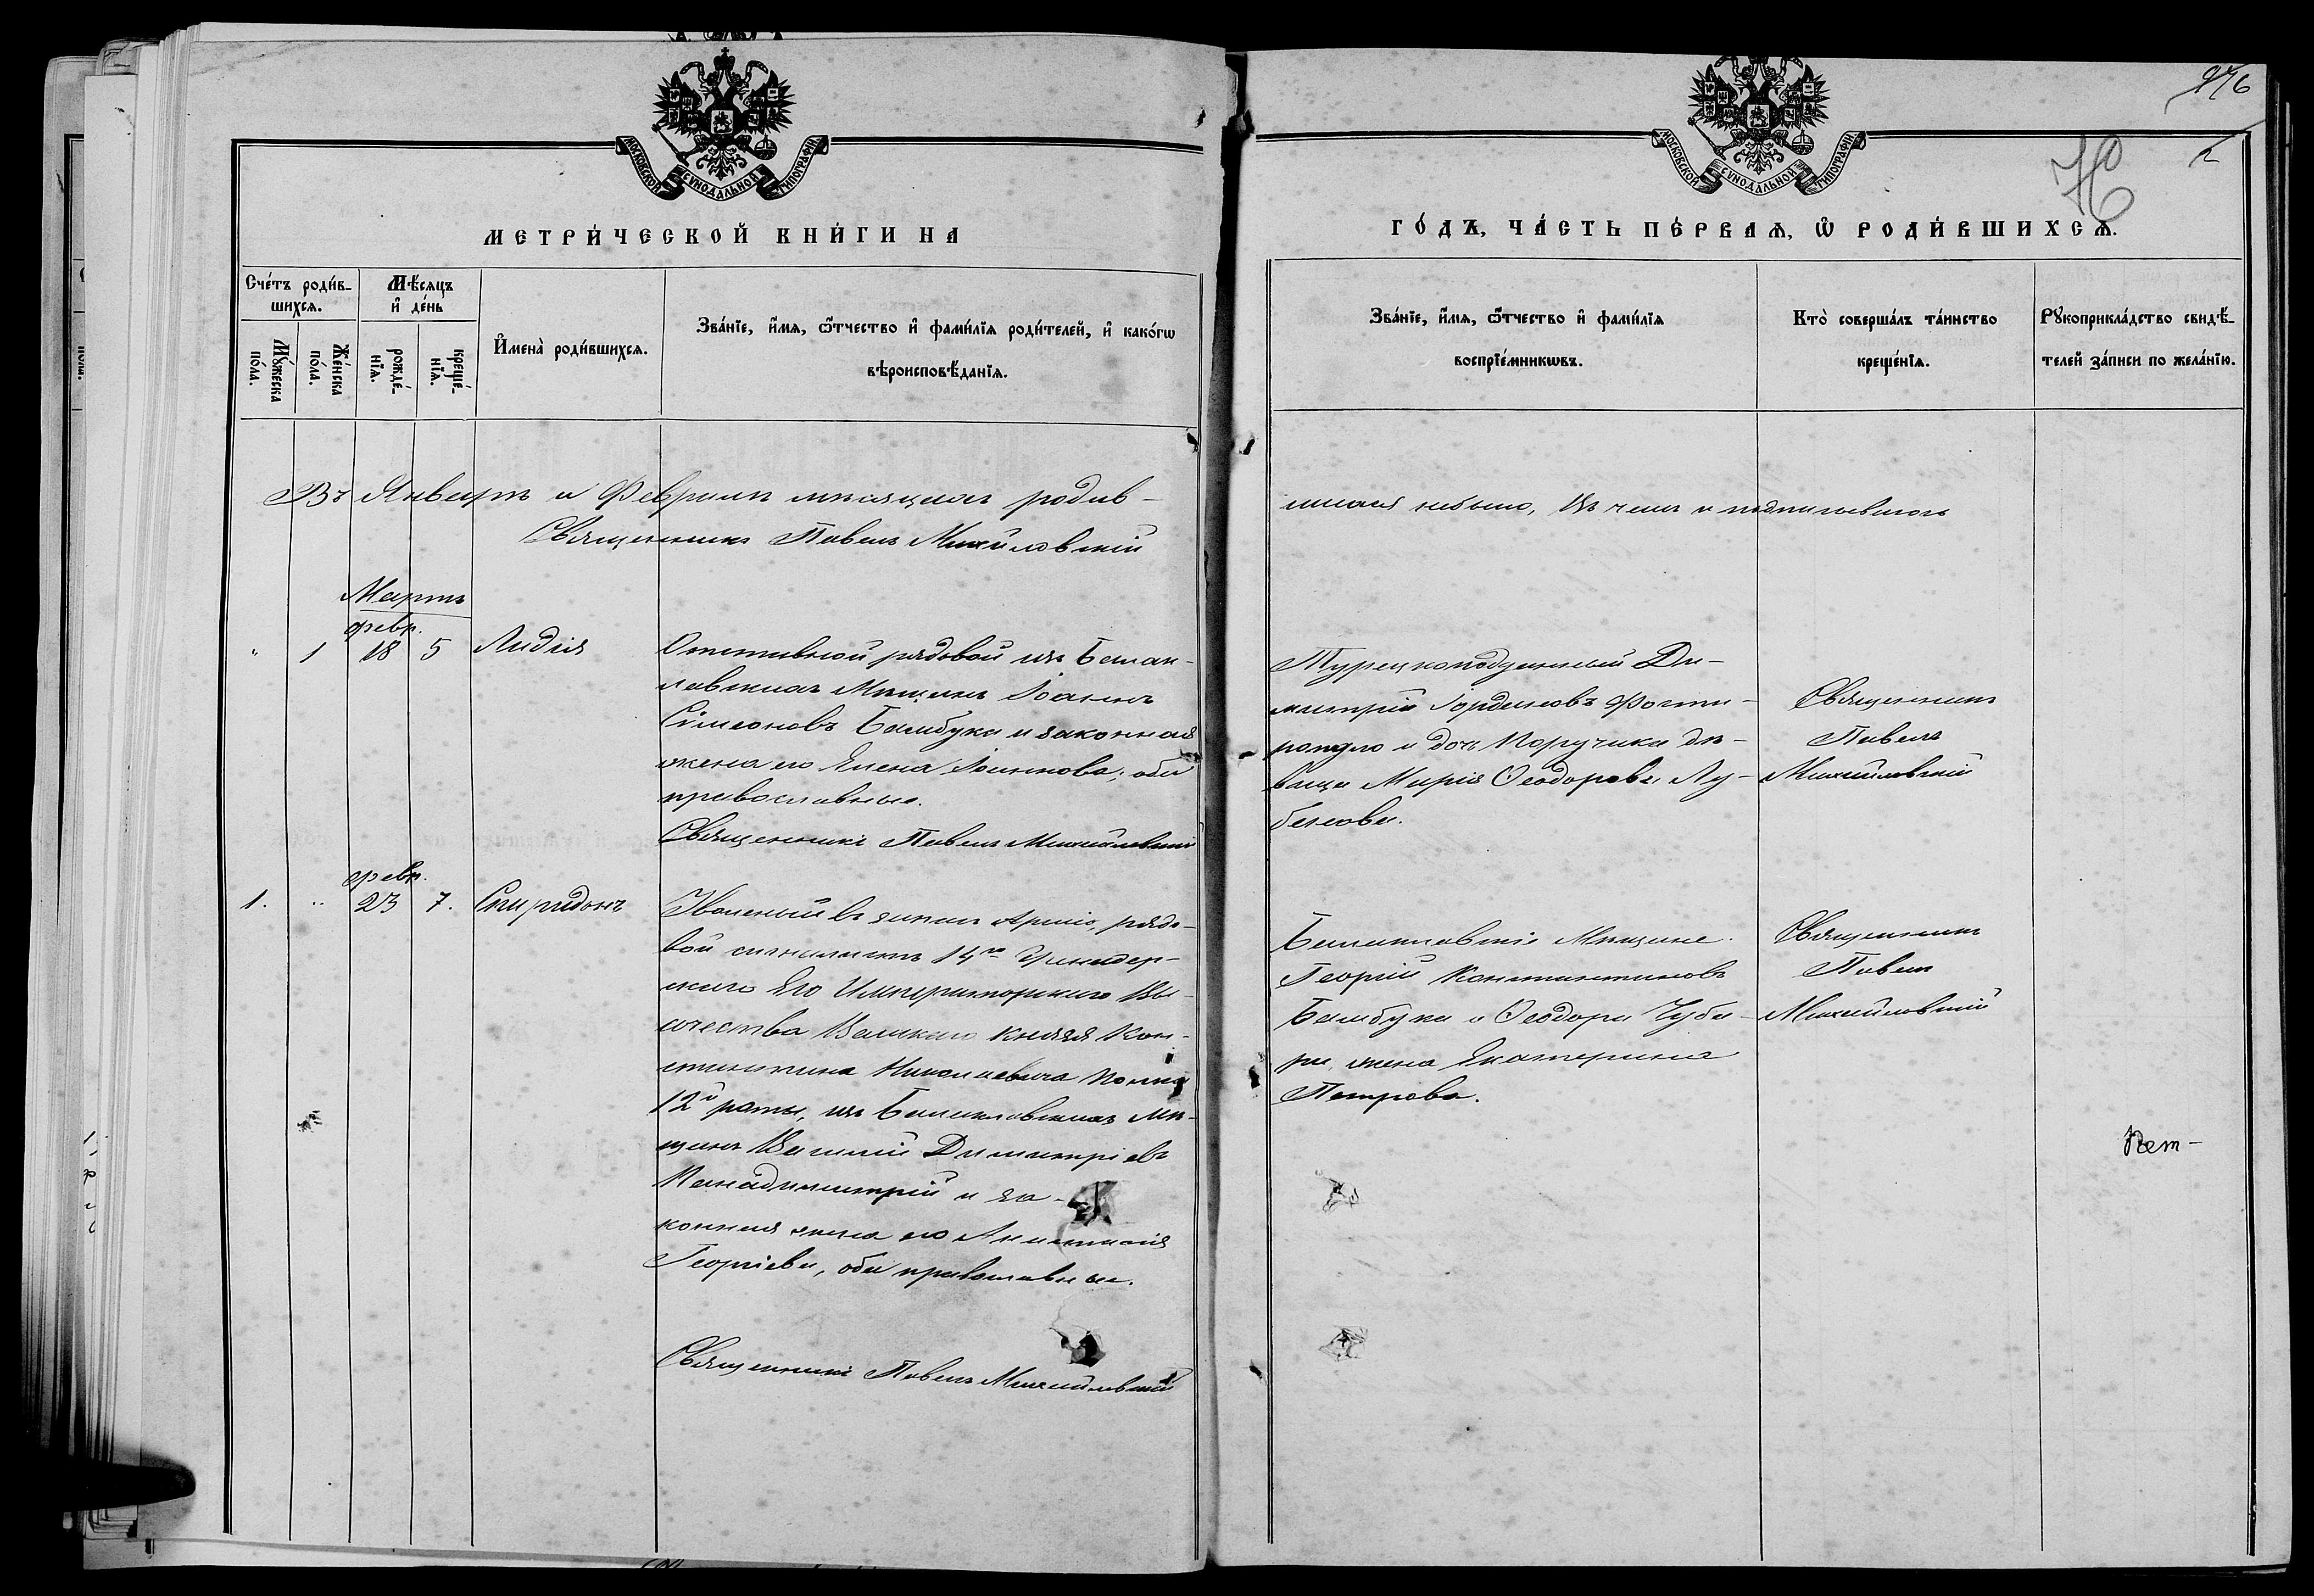 МОСКОВСКОЙ СѴНОДАЛЬНОЙ ТИПОГРАФІИ
МЕТРИ́ЧЕСКОЙ КНИ́ГИ НА
Сче́тъ роди́в-
шихся.
Мѣ́сяцъ
и҆ де́нь
Мꙋ́жеска
по́ла.
Же́нска
по́ла.
рожде́-
нїѧ.
креще́-
нїѧ.
И҆мена̀ роди́вшихсѧ.
Зва́нїе, и҆́мѧ, ѻ҆́тчество и҆ фами́лїѧ роди́телей, и҆ како́гѡ
вѣроисповѣ́данїѧ.
Въ Январѣ и Февралѣ мѣсяцахъ родив-
Священникъ Павелъ Михайловскій
Мартъ
февр.
" 1 18 5 Лидія
Отставной рядовой изъ Балак-
лавскихъ Мѣщанъ Іоаннъ
Симеоновъ Бамбука и законная
жена его Елена Іоаннова, оба
православные.
Священникъ Павелъ Михайловскій
февр.
1. " 23 7. Спиридонъ
вой сигналистъ 14го Гренадер-
скаго Его Императорскаго Вы-
сочества Великаго Князя Кон-
стантина Николаевича полка
12й роты, изъ Балаклавскихъ Мѣ-
щанъ Василій Димитріевъ
Пападимитрій и за-
конная жена его Анастасія
Георгіева, оба православные.
Священникъ Павелъ Михайловскій
976
МОСКОВСКОЙ СѴНОДАЛЬНОЙ ТИПОГРАФІИ
ГО́ДЪ, ЧА́СТЬ ПЕ́РВАѦ, Ѡ҆ РОДИ́ВШИХСѦ.
Зва́нїе, и҆́мѧ, ѻ҆́тчество и҆ фами́лїѧ
воспрїе́мникѡвъ.
Кто̀ соверша́лъ та́инство
креще́нїѧ.
Рꙋкоприкла́дство свидѣ́-
телей за́писи по жела́нїю.
шихся небыло, въ чемъ и подписываюсь
Турецкоподданный Ди-
митрій Іордановъ Фоти-
и дочь Поручика дѣ-
вица Марія Ѳеодорова Лу-
Священникъ
Павелъ
Михайловскій
Балаклавскіе Мѣщане
Георгій Константиновъ
Бамбука и Ѳеодора Чуба-
ри, жена Екатерина
Петрова.
Священникъ
Павелъ
Михайловскій